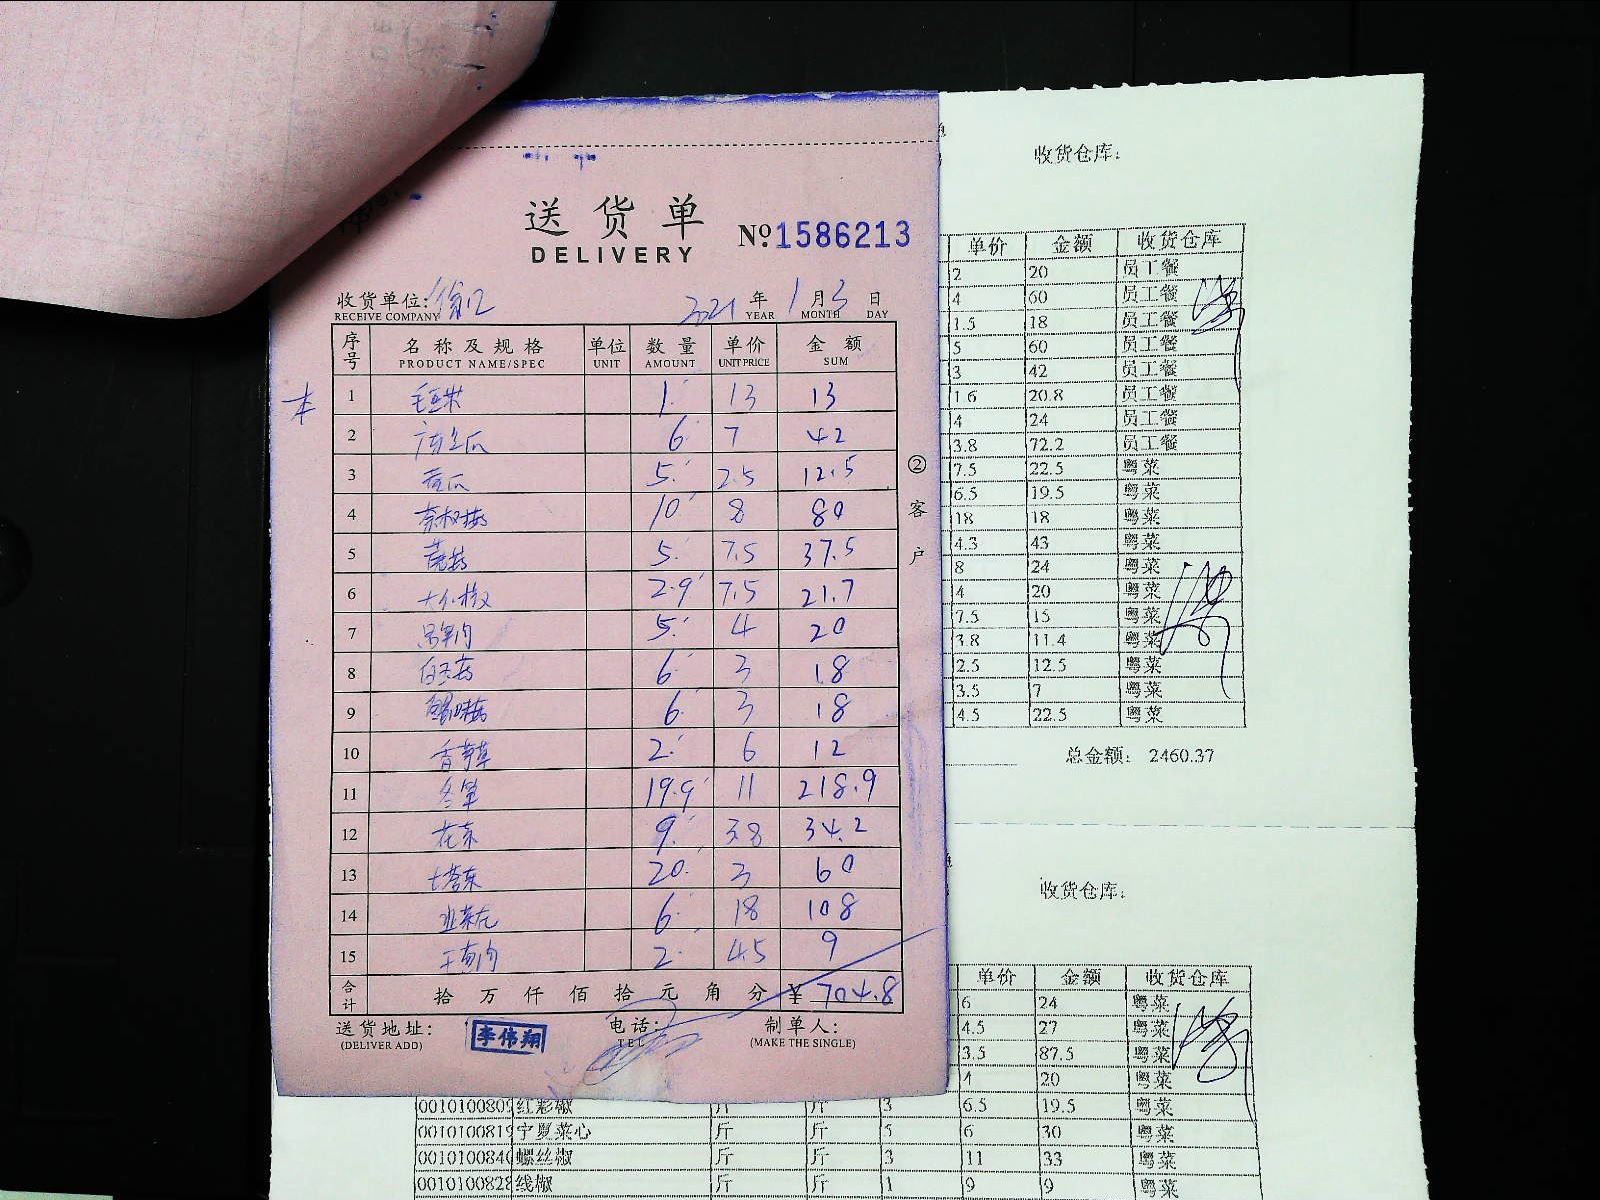 送货单
DELIVERY
№1586213
收货单位:
RECEIVE COMPANY
2021 年 1 月 3 日
YEAR MONTH DAY
序号 名称及规格 单位 数量 单价 金额
PRODUCT NAME/SPEC UNIT AMOUNT UNIT PRICE SUM
1 毛豆米 1 13 13
2 6 7 42
3 黄瓜 5 2.5 12.5
4 10 8 80
5 5 7.5 37.5
6 2.9 7.5 21.7
7 5 4 20
8 白玉菇 6 3 18
9 6 3 18
10 香芹 2 6 12
11 冬笋 19.9 11 218.9
12 花菜 9 3.8 34.2
13 20 3 60
14 韭菜 6 18 108
15 2 4.5 9
合计 拾万仟佰拾元角分 ¥ 704.8
送货地址: 电话: 制单人:
(DELIVER ADD) TEL (MAKE THE SINGLE)
李伟翔
②客户
收货仓库:
单价 金额 收货仓库
2 20 员工餐
4 60 员工餐
1.5 18 员工餐
5 60 员工餐
3 42 员工餐
1.6 20.8 员工餐
4 24 员工餐
3.8 72.2 员工餐
7.5 22.5 粤菜
6.5 19.5 粤菜
18 18 粤菜
4.3 43 粤菜
8 24 粤菜
4 20 粤菜
7.5 15 粤菜
3.8 11.4 粤菜
2.5 12.5 粤菜
3.5 7 粤菜
4.5 22.5 粤菜
总金额: 2460.37
收货仓库:
单价 金额 收货仓库
6 24 粤菜
4.5 27 粤菜
3.5 87.5 粤菜
4 20 粤菜
0010100809 红彩椒 斤 斤 3 6.5 19.5 粤菜
0010100819 宁夏菜心 斤 斤 5 6 30 粤菜
001010084 螺丝椒 斤 斤 3 11 33 粤菜
0010100828 线椒 斤 斤 1 9 9 粤菜